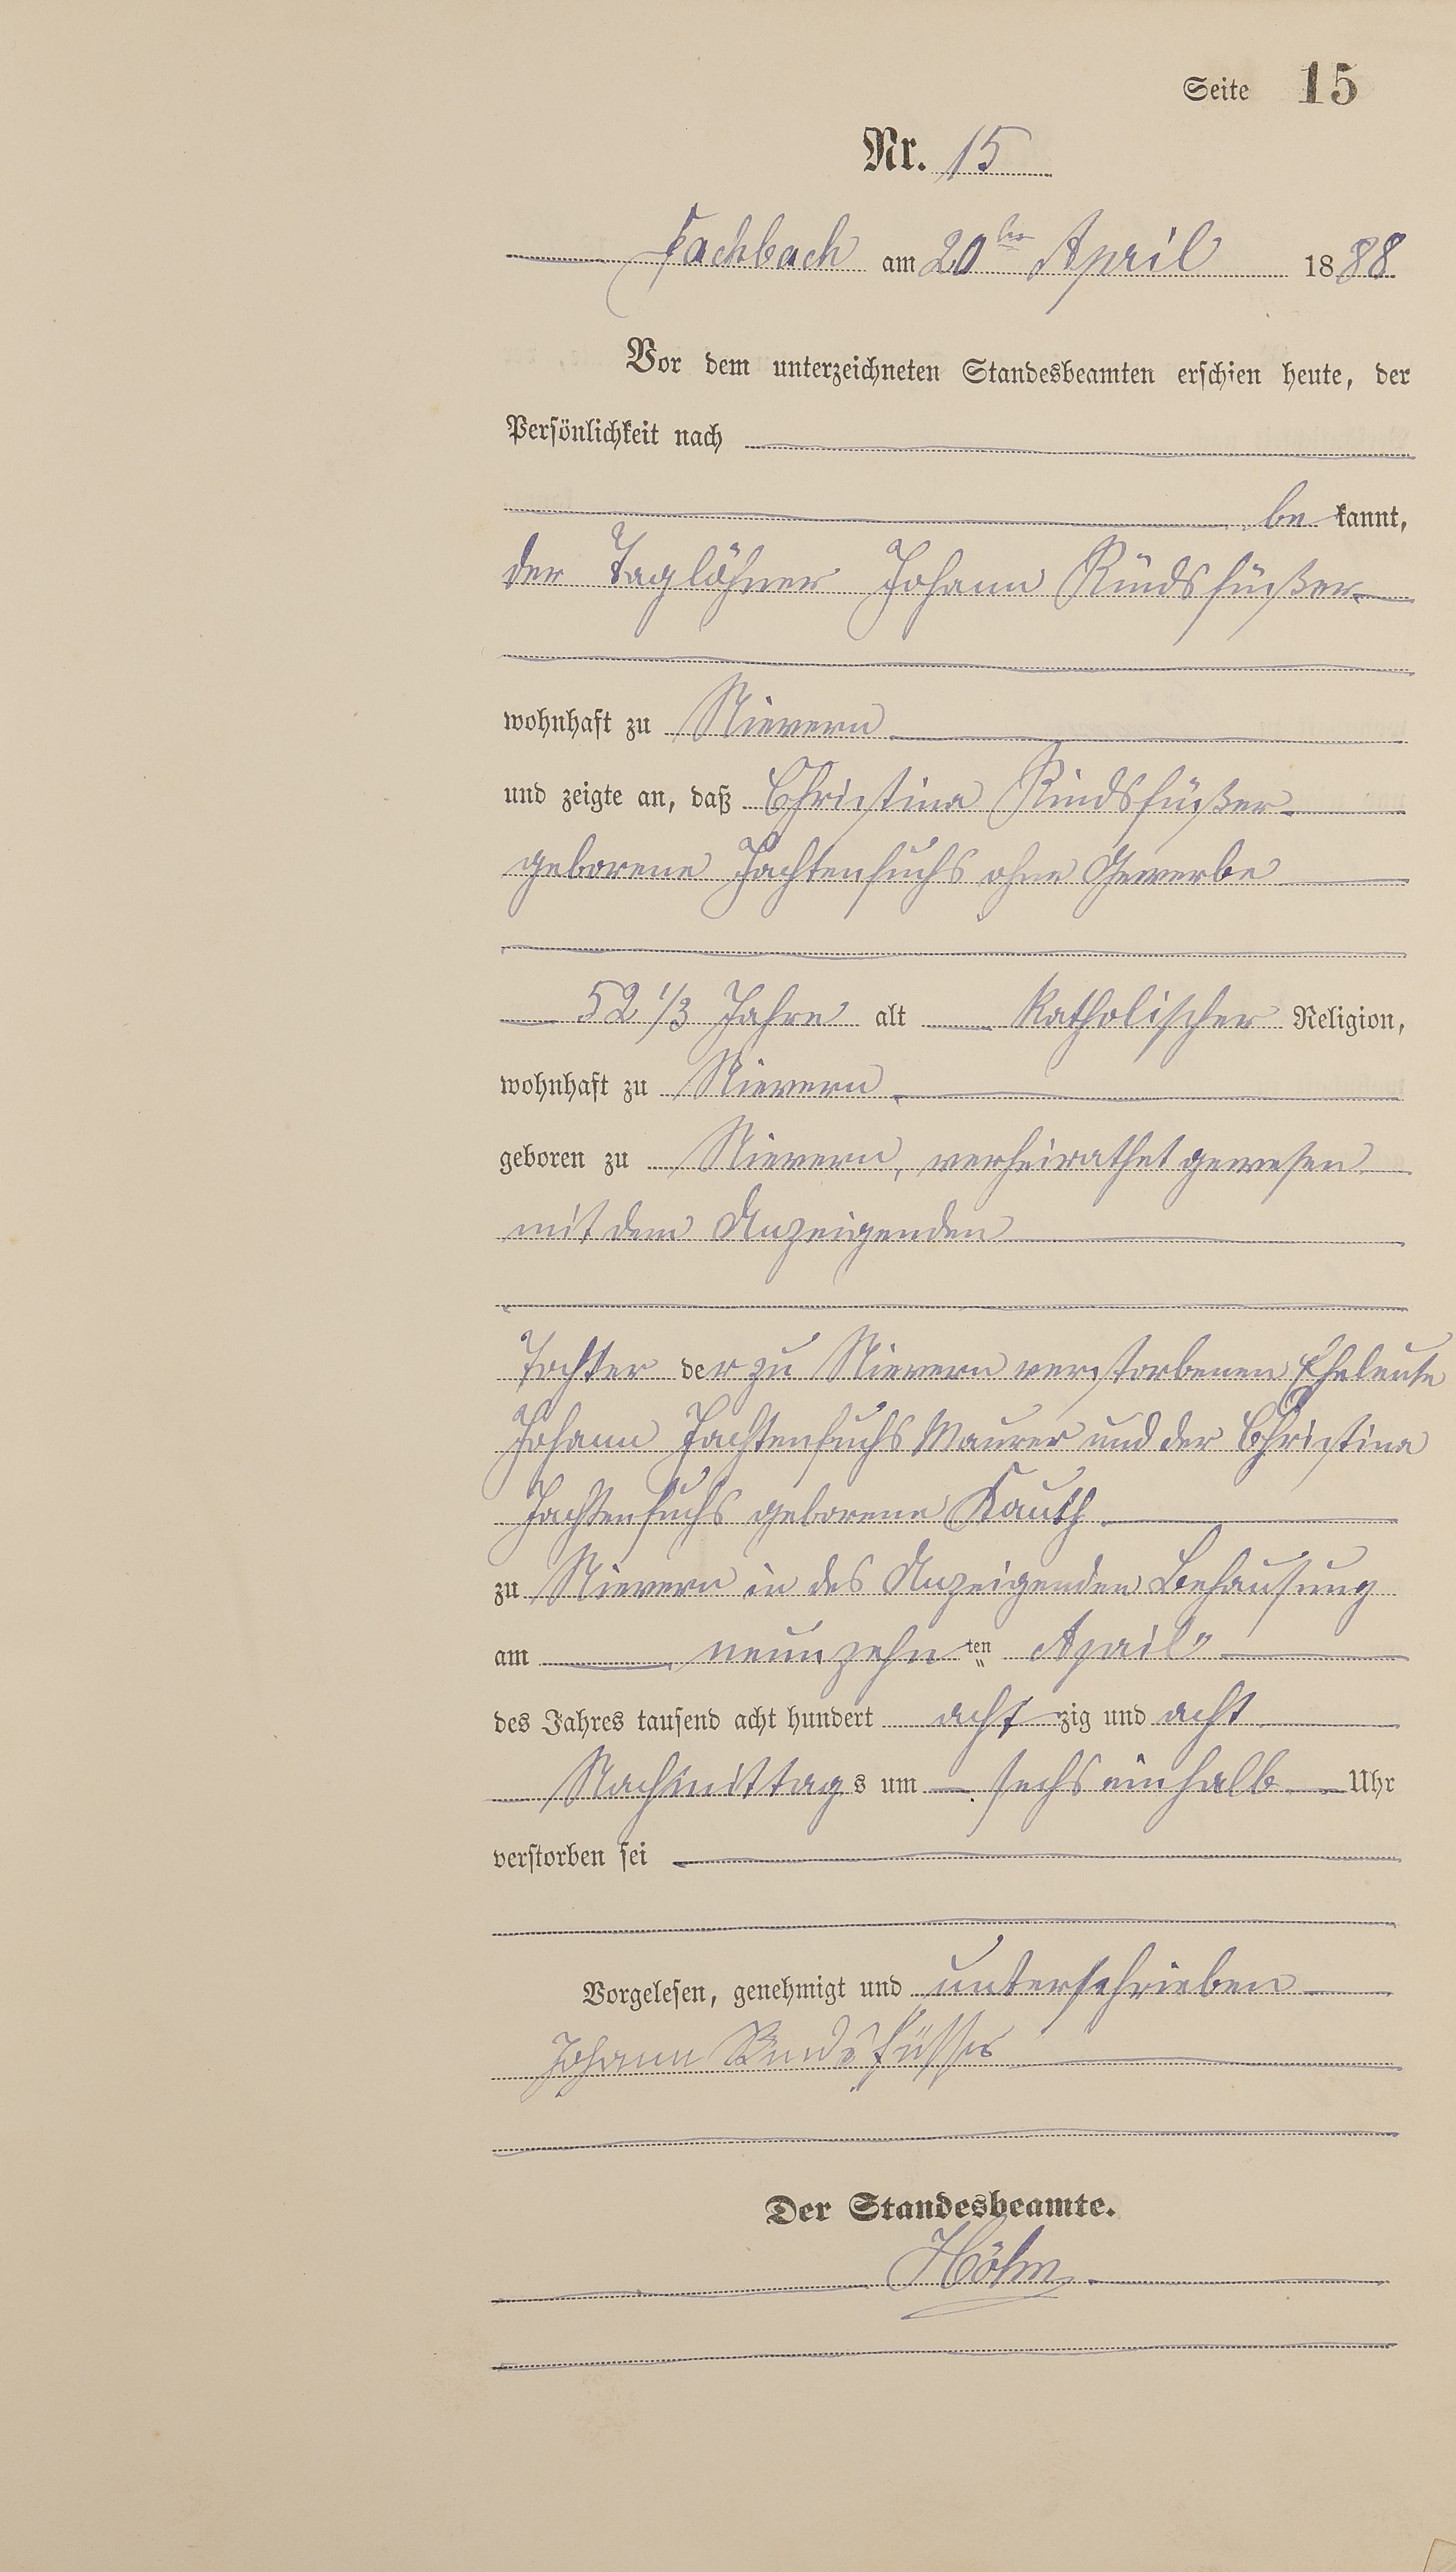 Seite 15
Nr. 15
Fachbach am 20ten April 1888
Vor dem unterzeichneten Standesbeamten erschien heute, der
Persönlichkeit nach
be kannt,
der Taglöhner Johann Rindsfüßer
wohnhaft zu Nievern
und zeigte an, daß Christina Rindsfüßer
geborene Jachtenfuchs ohne Gewerbe
52 1/3 Jahre alt katholischer Religion,
wohnhaft zu Nievern
geboren zu Nievern, verheirathet gewesen
mit dem Anzeigenden
Tochter der zu Nievern verstorbenen Eheleute
Johann Jachtenfuchs Maurer und der Christina
Jachtenfuchs geborene Kauth
zu Nievern in des Anzeigenden Behausung
am neunzehn ten April
des Jahres tausend acht hundert acht zig und acht
Nachmittags um sechs einhalb Uhr
verstorben sei
Vorgelesen, genehmigt und unterschrieben
Johann Rindsfüsser
Der Standesbeamte.